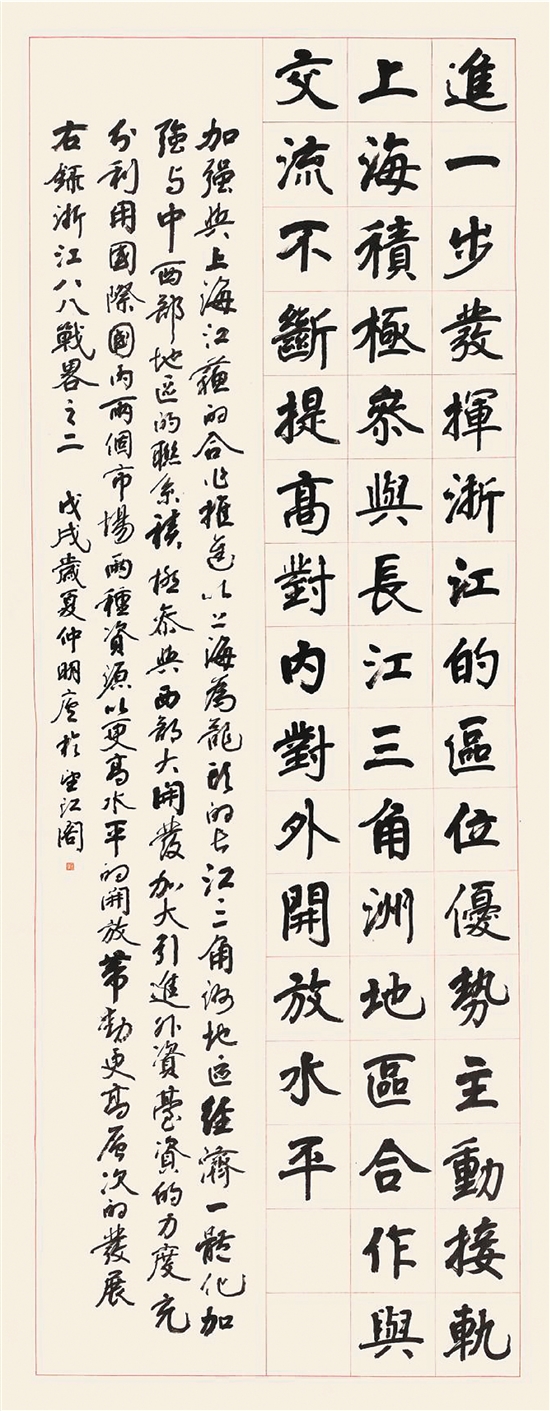 進一步發揮浙江的區位優勢主動接軌
上海積極參與長江三角洲地區合作與
交流不斷提高對内對外開放水平
加强與上海江蘇的合作推進以上海為龍頭的长江三角洲地区經濟一體化加
强与中西部地区的聯系積極参與西部大開發加大引進外資臺資的力度充
分利用國際國内兩個市場兩種資源以更高水平的開放帶動更高层次的發展
右録浙江八八戰畧之二 戊戌歲夏仲明於望江閣